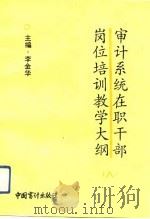 审计系统在职干部
岗位培训教学大纲
主编·李金华
中国审计出版社